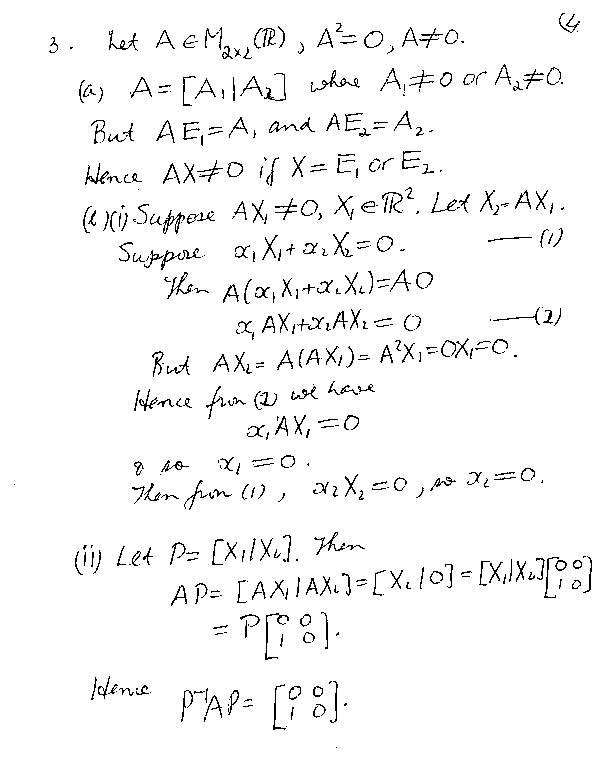 (4
3. Let A ∈ M₂ₓ₂(ℝ), A²=0, A≠0.
(a) A = [A₁|A₂] where A₁≠0 or A₂≠0.
But AE₁=A₁ and AE₂=A₂.
Hence AX≠0 if X = E₁ or E₂.
(b)(i) Suppose AX₁≠0, X₁∈ℝ². Let X₂=AX₁.
Suppose x₁X₁+x₂X₂=0. —(1)
Then A(x₁X₁+x₂X₂)=A0
x₁AX₁+x₂AX₂=0 —(2)
But AX₂=A(AX₁)=A²X₁=0X₁=0.
Hence from (2) we have
x₁AX₁=0
& so x₁=0.
Then from (1), x₂X₂=0, so x₂=0.
(ii) Let P=[X₁|X₂]. Then
AP=[AX₁|AX₂]=[X₂|0]=[X₁|X₂][0 0
1 0]
=P[0 0
1 0].
Hence P⁻¹AP=[0 0
1 0].